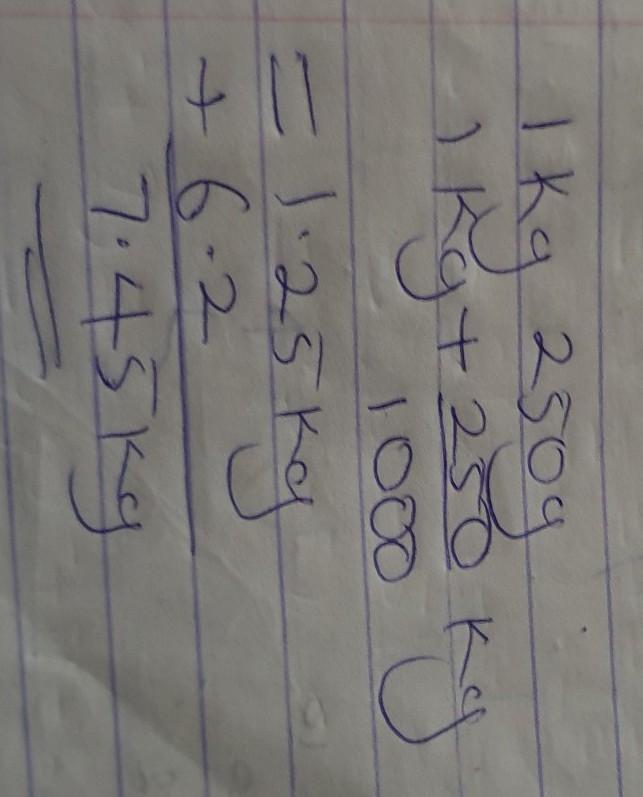 1 kg 250g
1 kg + 250 kg
1000
= 1.25 kg
+ 6.2
7.45 kg